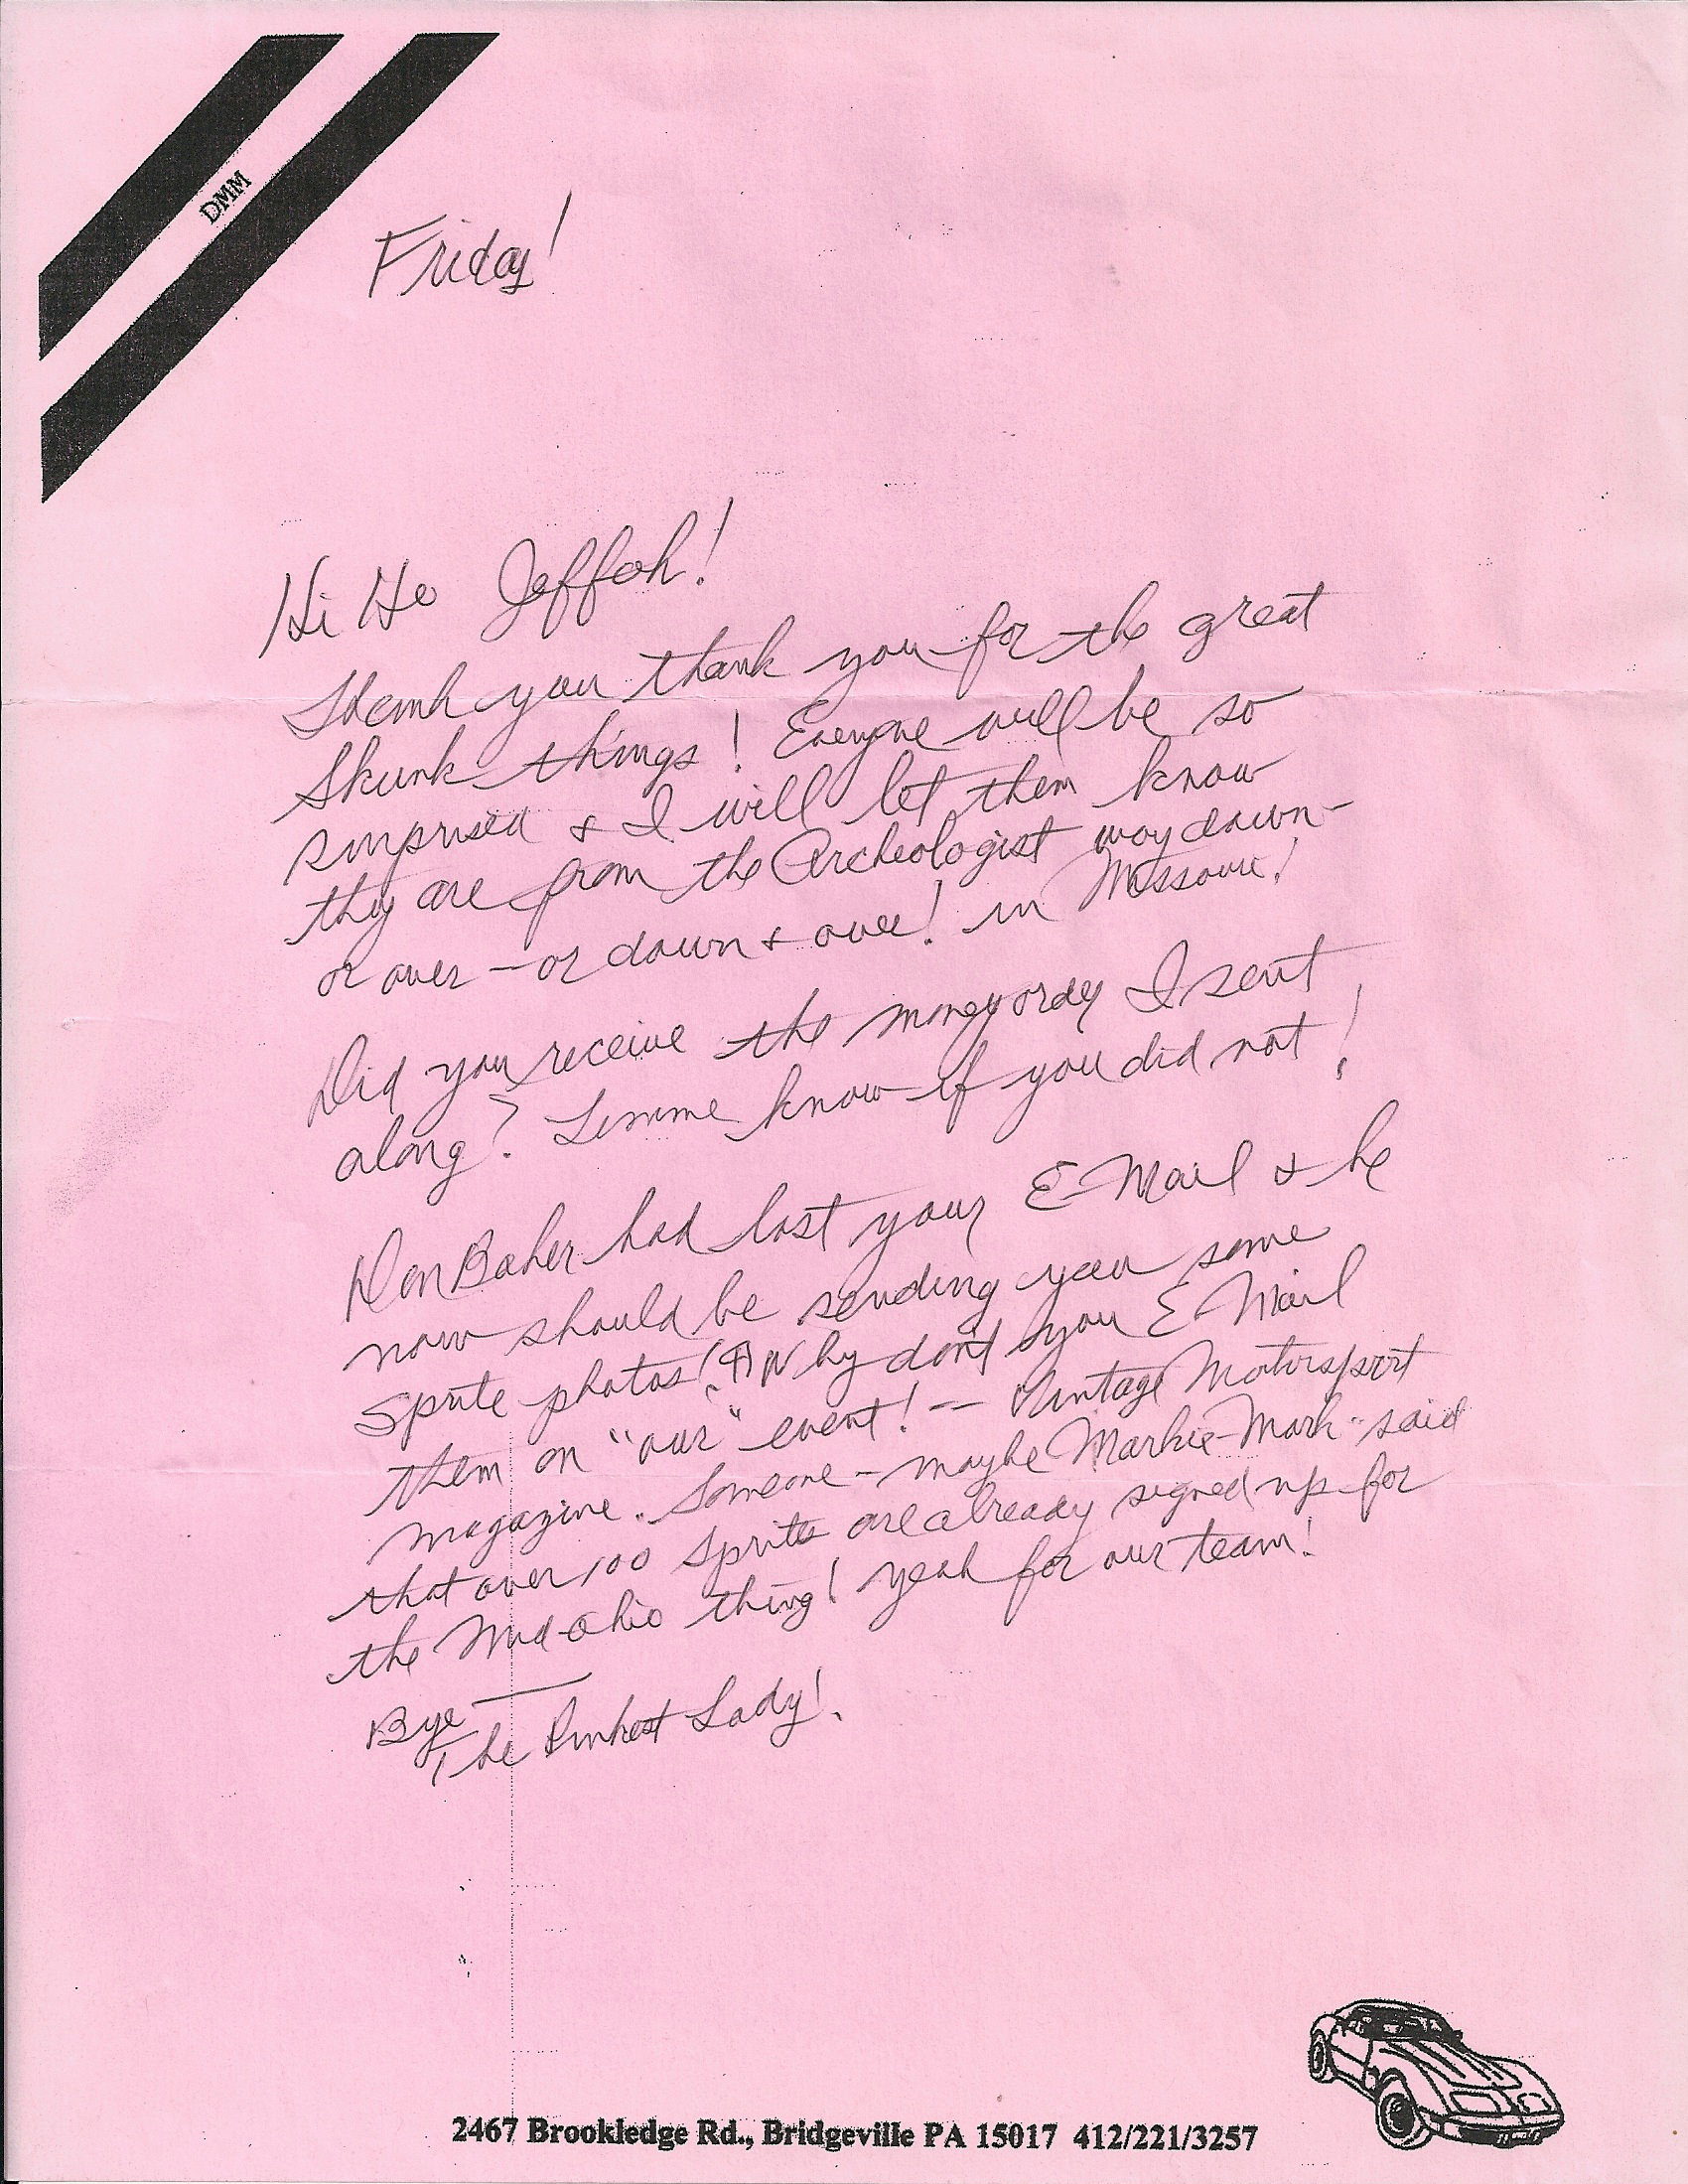 DMM
Friday!
Hi Ho Jeffoh!
Thank you thank you for the great
Skunk things! Everyone will be so
surprised & I will let them know
they are from the Archeologist way down-
or over - or down & over! in Missouri!
Did you receive the money order I sent
along? Lemme know if you did not!
Don Baker had lost your E-Mail & he
now should be sending you some
Sprite photos! Why dont you E-Mail
them on "our" event! -- Vintage Motorsport
magazine. Someone - maybe Markie-Mark - said
that over 100 Sprites are already signed up for
the Mid-Ohio thing! Yeah for our team!
Bye —
The Pinkest Lady!
2467 Brookledge Rd., Bridgeville PA 15017 412/221/3257